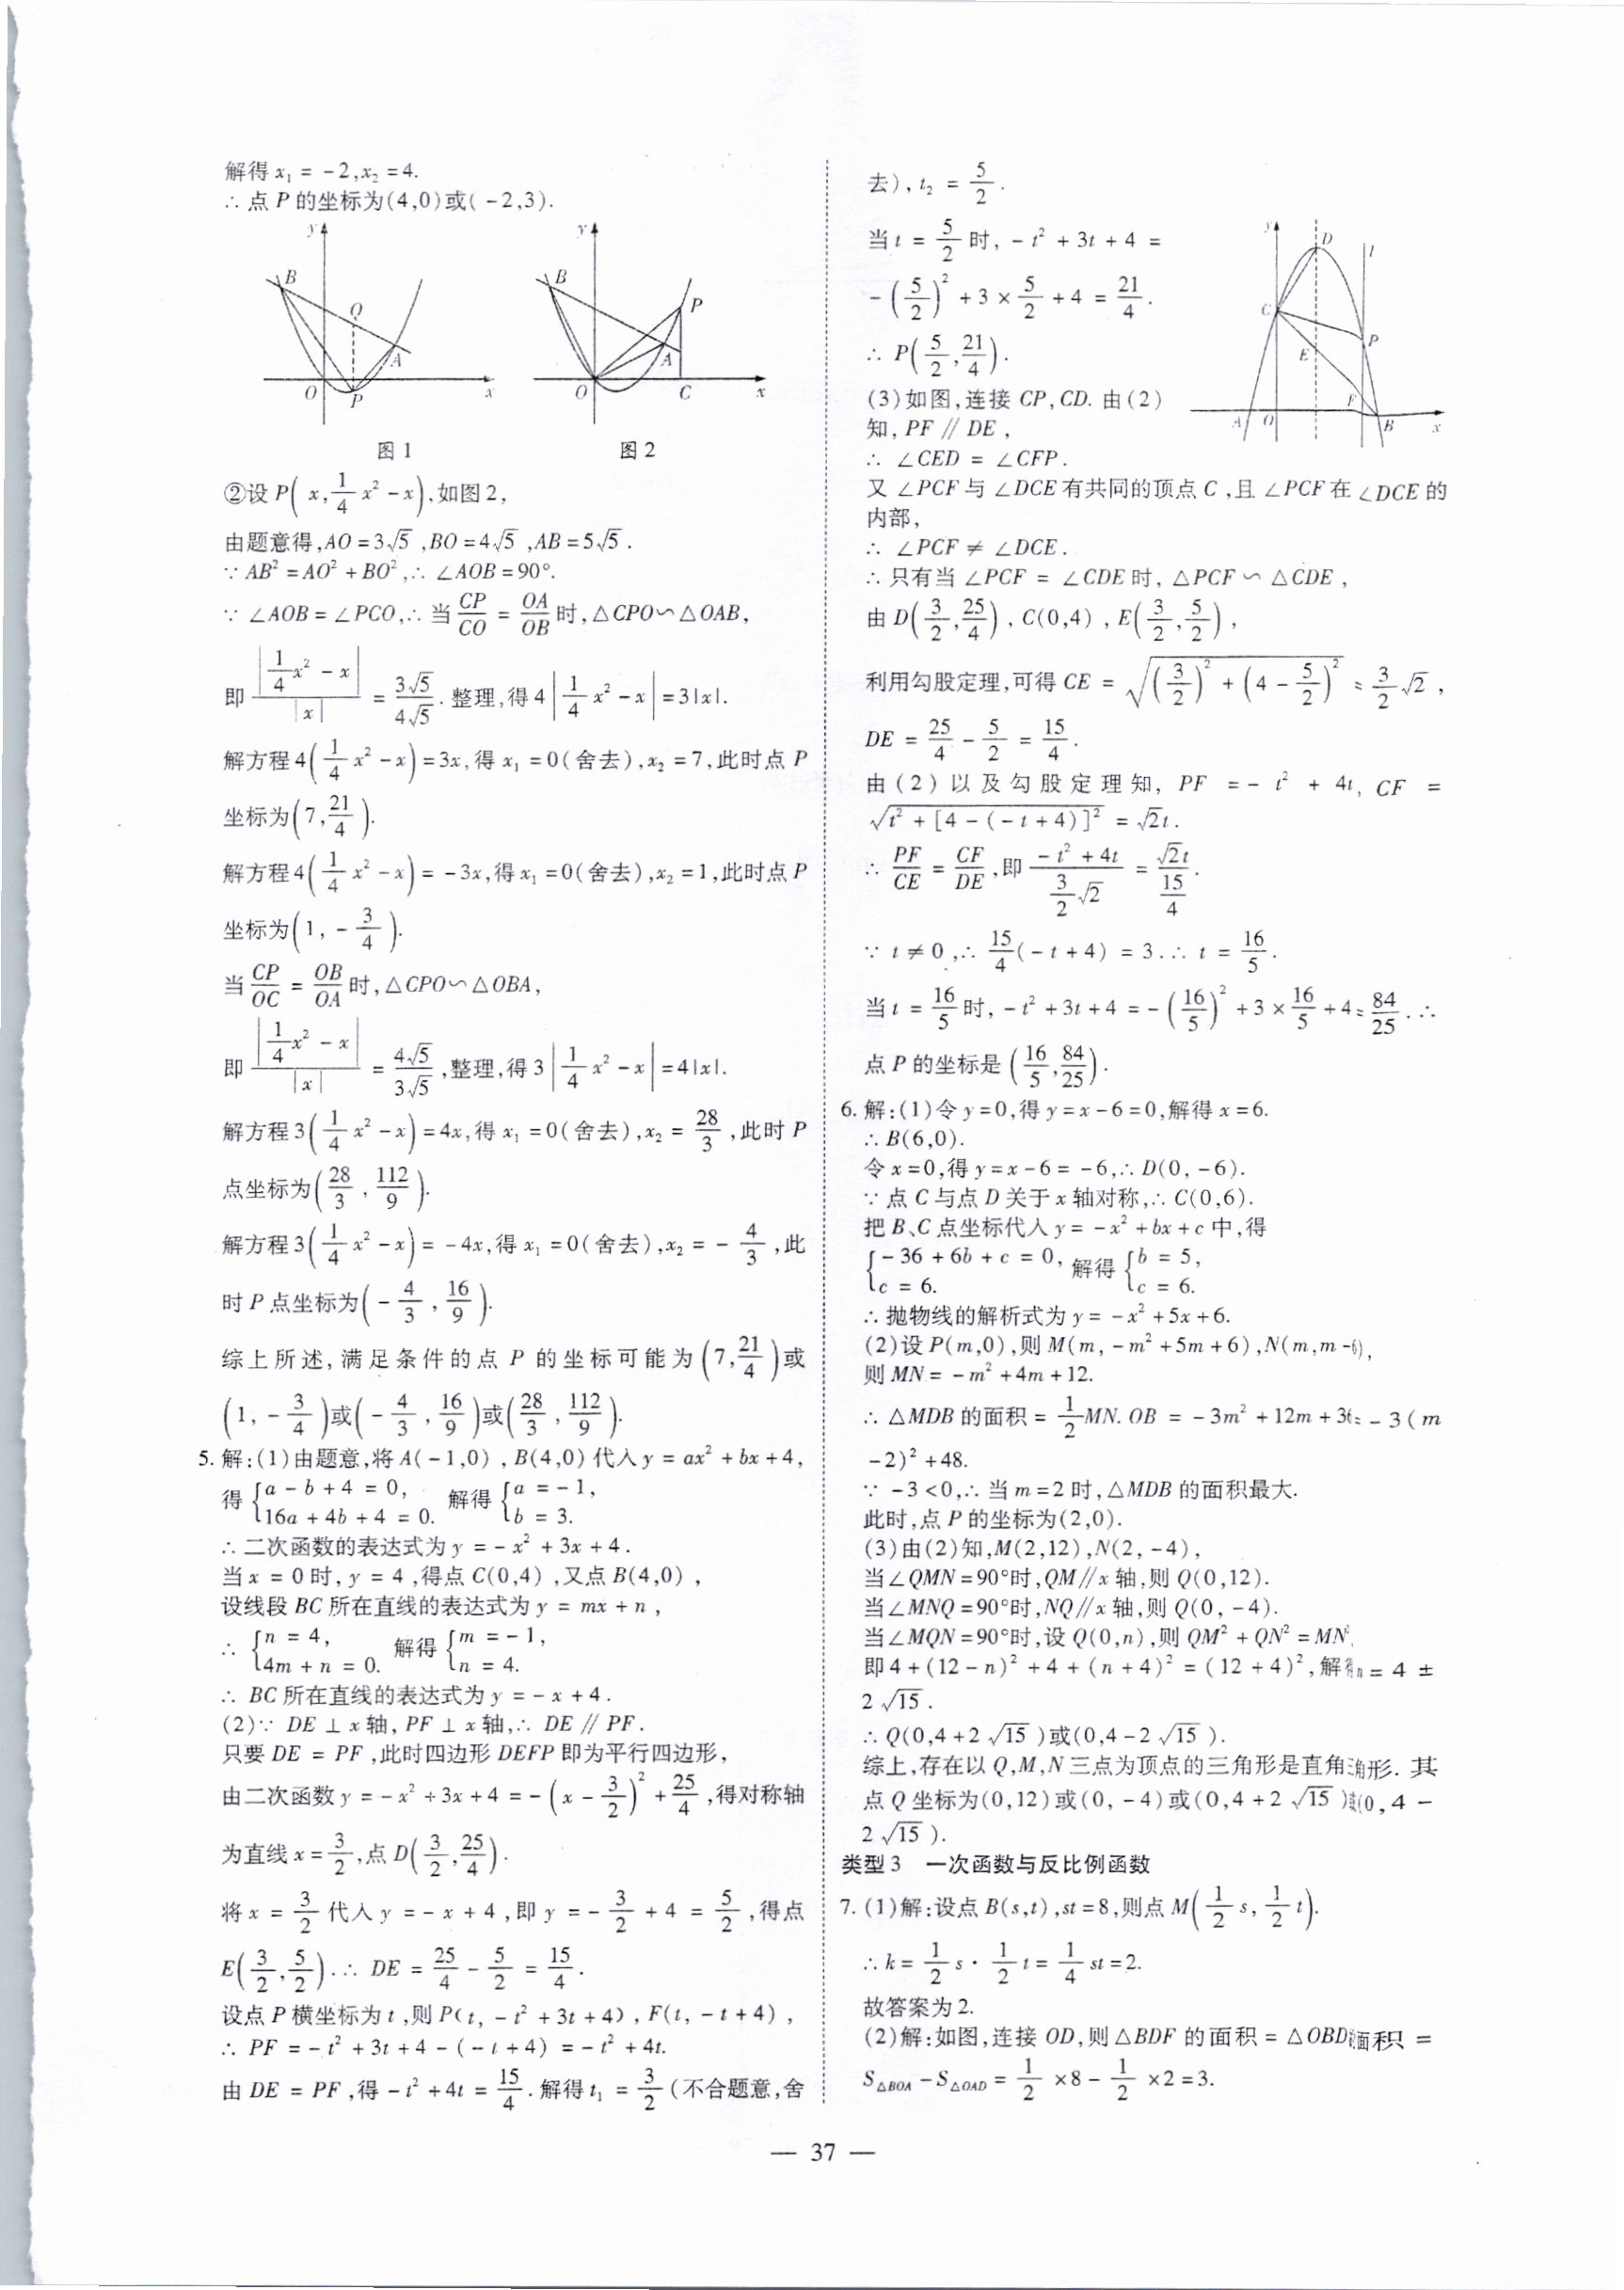 解得 x₁ = -2,x₂ =4.
∴ 点 P 的坐标为(4,0)或( -2,3).
y B Q A O P x
y B P A O C x
图 1 图 2
②设 P(x,1/4 x² -x),如图 2,
由题意得,AO =3√5 ,BO =4√5 ,AB =5√5 .
∵ AB² =AO² +BO² ,∴ ∠AOB =90°.
∵ ∠AOB = ∠PCO,∴ 当 CP/CO = OA/OB 时,△CPO∽△OAB,
即 |1/4 x² - x|/|x| = 3√5/4√5 . 整理,得 4|1/4 x² -x| =3|x|.
解方程 4(1/4 x² -x) =3x,得 x₁ =0(舍去),x₂ =7,此时点 P
坐标为(7,21/4).
解方程 4(1/4 x² -x) = -3x,得 x₁ =0(舍去),x₂ =1,此时点 P
坐标为(1, -3/4).
当 CP/OC = OB/OA 时,△CPO∽△OBA,
即 |1/4 x² - x|/|x| = 4√5/3√5 ,整理,得 3|1/4 x² -x| =4|x|.
解方程 3(1/4 x² -x) =4x,得 x₁ =0(舍去),x₂ = 28/3 ,此时 P
点坐标为(28/3 ,112/9).
解方程 3(1/4 x² -x) = -4x,得 x₁ =0(舍去),x₂ = -4/3 ,此
时 P 点坐标为(-4/3 ,16/9).
综上所述, 满足条件的点 P 的坐标可能为(7,21/4)或
(1, -3/4)或(-4/3 ,16/9)或(28/3 ,112/9).
5. 解:(1)由题意,将 A( -1,0) , B(4,0) 代入 y = ax² + bx +4,
得 {a - b + 4 = 0, 16a + 4b + 4 = 0. 解得 {a = - 1, b = 3.
∴ 二次函数的表达式为 y = - x² + 3x + 4 .
当 x = 0 时, y = 4 ,得点 C(0,4) ,又点 B(4,0) ,
设线段 BC 所在直线的表达式为 y = mx + n ,
∴ {n = 4, 4m + n = 0. 解得 {m = - 1, n = 4.
∴ BC 所在直线的表达式为 y = - x + 4 .
(2)∵ DE ⊥ x 轴, PF ⊥ x 轴,∴ DE ∥ PF .
只要 DE = PF ,此时四边形 DEFP 即为平行四边形,
由二次函数 y = - x² + 3x + 4 = - (x - 3/2)² + 25/4 ,得对称轴
为直线 x = 3/2 ,点 D(3/2 ,25/4) .
将 x = 3/2 代入 y = - x + 4 ,即 y = - 3/2 + 4 = 5/2 ,得点
E(3/2 ,5/2) .∴ DE = 25/4 - 5/2 = 15/4 .
设点 P 横坐标为 t ,则 P(t, - t² + 3t + 4) , F(t, - t + 4) ,
∴ PF = - t² + 3t + 4 - ( - t + 4) = - t² + 4t.
由 DE = PF ,得 - t² + 4t = 15/4 . 解得 t₁ = 3/2 (不合题意,舍
去), t₂ = 5/2 .
当 t = 5/2 时, - t² + 3t + 4 =
- (5/2)² + 3 × 5/2 + 4 = 21/4 .
∴ P(5/2 ,21/4) .
(3)如图,连接 CP, CD. 由(2)
知, PF ∥ DE ,
y D l C P E F A O B x
∴ ∠CED = ∠CFP .
又 ∠PCF 与 ∠DCE 有共同的顶点 C ,且 ∠PCF 在 ∠DCE 的
内部,
∴ ∠PCF ≠ ∠DCE .
∴ 只有当 ∠PCF = ∠CDE 时, △PCF ∽ △CDE ,
由 D(3/2 ,25/4) , C(0,4) , E(3/2 ,5/2) ,
利用勾股定理,可得 CE = √((3/2)² + (4 - 5/2)²) = 3/2 √2 ,
DE = 25/4 - 5/2 = 15/4 .
由(2)以及勾股定理知, PF = - t² + 4t, CF =
√(t² + [4 - ( - t + 4)]²) = √2t .
∴ PF/CE = CF/DE ,即 (- t² + 4t)/(3/2 √2) = √2t/(15/4) .
∵ t ≠ 0 ,∴ 15/4 ( - t + 4) = 3 .∴ t = 16/5 .
当 t = 16/5 时, - t² + 3t + 4 = - (16/5)² + 3 × 16/5 + 4 = 84/25 . ∴
点 P 的坐标是 (16/5 ,84/25) .
6. 解:(1)令 y =0,得 y =x -6 =0,解得 x =6.
∴ B(6,0).
令 x =0,得 y =x -6 = -6,∴ D(0, -6).
∵ 点 C 与点 D 关于 x 轴对称,∴ C(0,6).
把 B、C 点坐标代入 y = -x² +bx +c 中,得
{- 36 + 6b + c = 0, c = 6. 解得 {b = 5, c = 6.
∴ 抛物线的解析式为 y = -x² +5x +6.
(2)设 P(m,0),则 M(m, -m² +5m +6),N(m,m -6),
则 MN = -m² +4m +12.
∴ △MDB 的面积 = 1/2 MN. OB = -3m² +12m +36 = -3(m
-2)² +48.
∵ -3 <0,∴ 当 m =2 时,△MDB 的面积最大.
此时,点 P 的坐标为(2,0).
(3)由(2)知,M(2,12),N(2, -4),
当∠QMN =90°时,QM∥x 轴,则 Q(0,12).
当∠MNQ =90°时,NQ∥x 轴,则 Q(0, -4).
当∠MQN =90°时,设 Q(0,n),则 QM² +QN² =MN²,
即 4 +(12 -n)² +4 +(n +4)² =(12 +4)²,解得 n = 4 ±
2 √15 .
∴ Q(0,4 +2 √15 )或(0,4 -2 √15 ).
综上,存在以 Q,M,N 三点为顶点的三角形是直角三角形. 其
点 Q 坐标为(0,12)或(0, -4)或(0,4 +2 √15 )或(0,4 -
2 √15 ).
类型 3 一次函数与反比例函数
7. (1)解:设点 B(s,t),st =8,则点 M(1/2 s,1/2 t).
∴ k = 1/2 s · 1/2 t = 1/4 st =2.
故答案为 2.
(2)解:如图,连接 OD,则△BDF 的面积 = △OBD的面积 =
S△BOA -S△OAD = 1/2 ×8 - 1/2 ×2 =3.
— 37 —